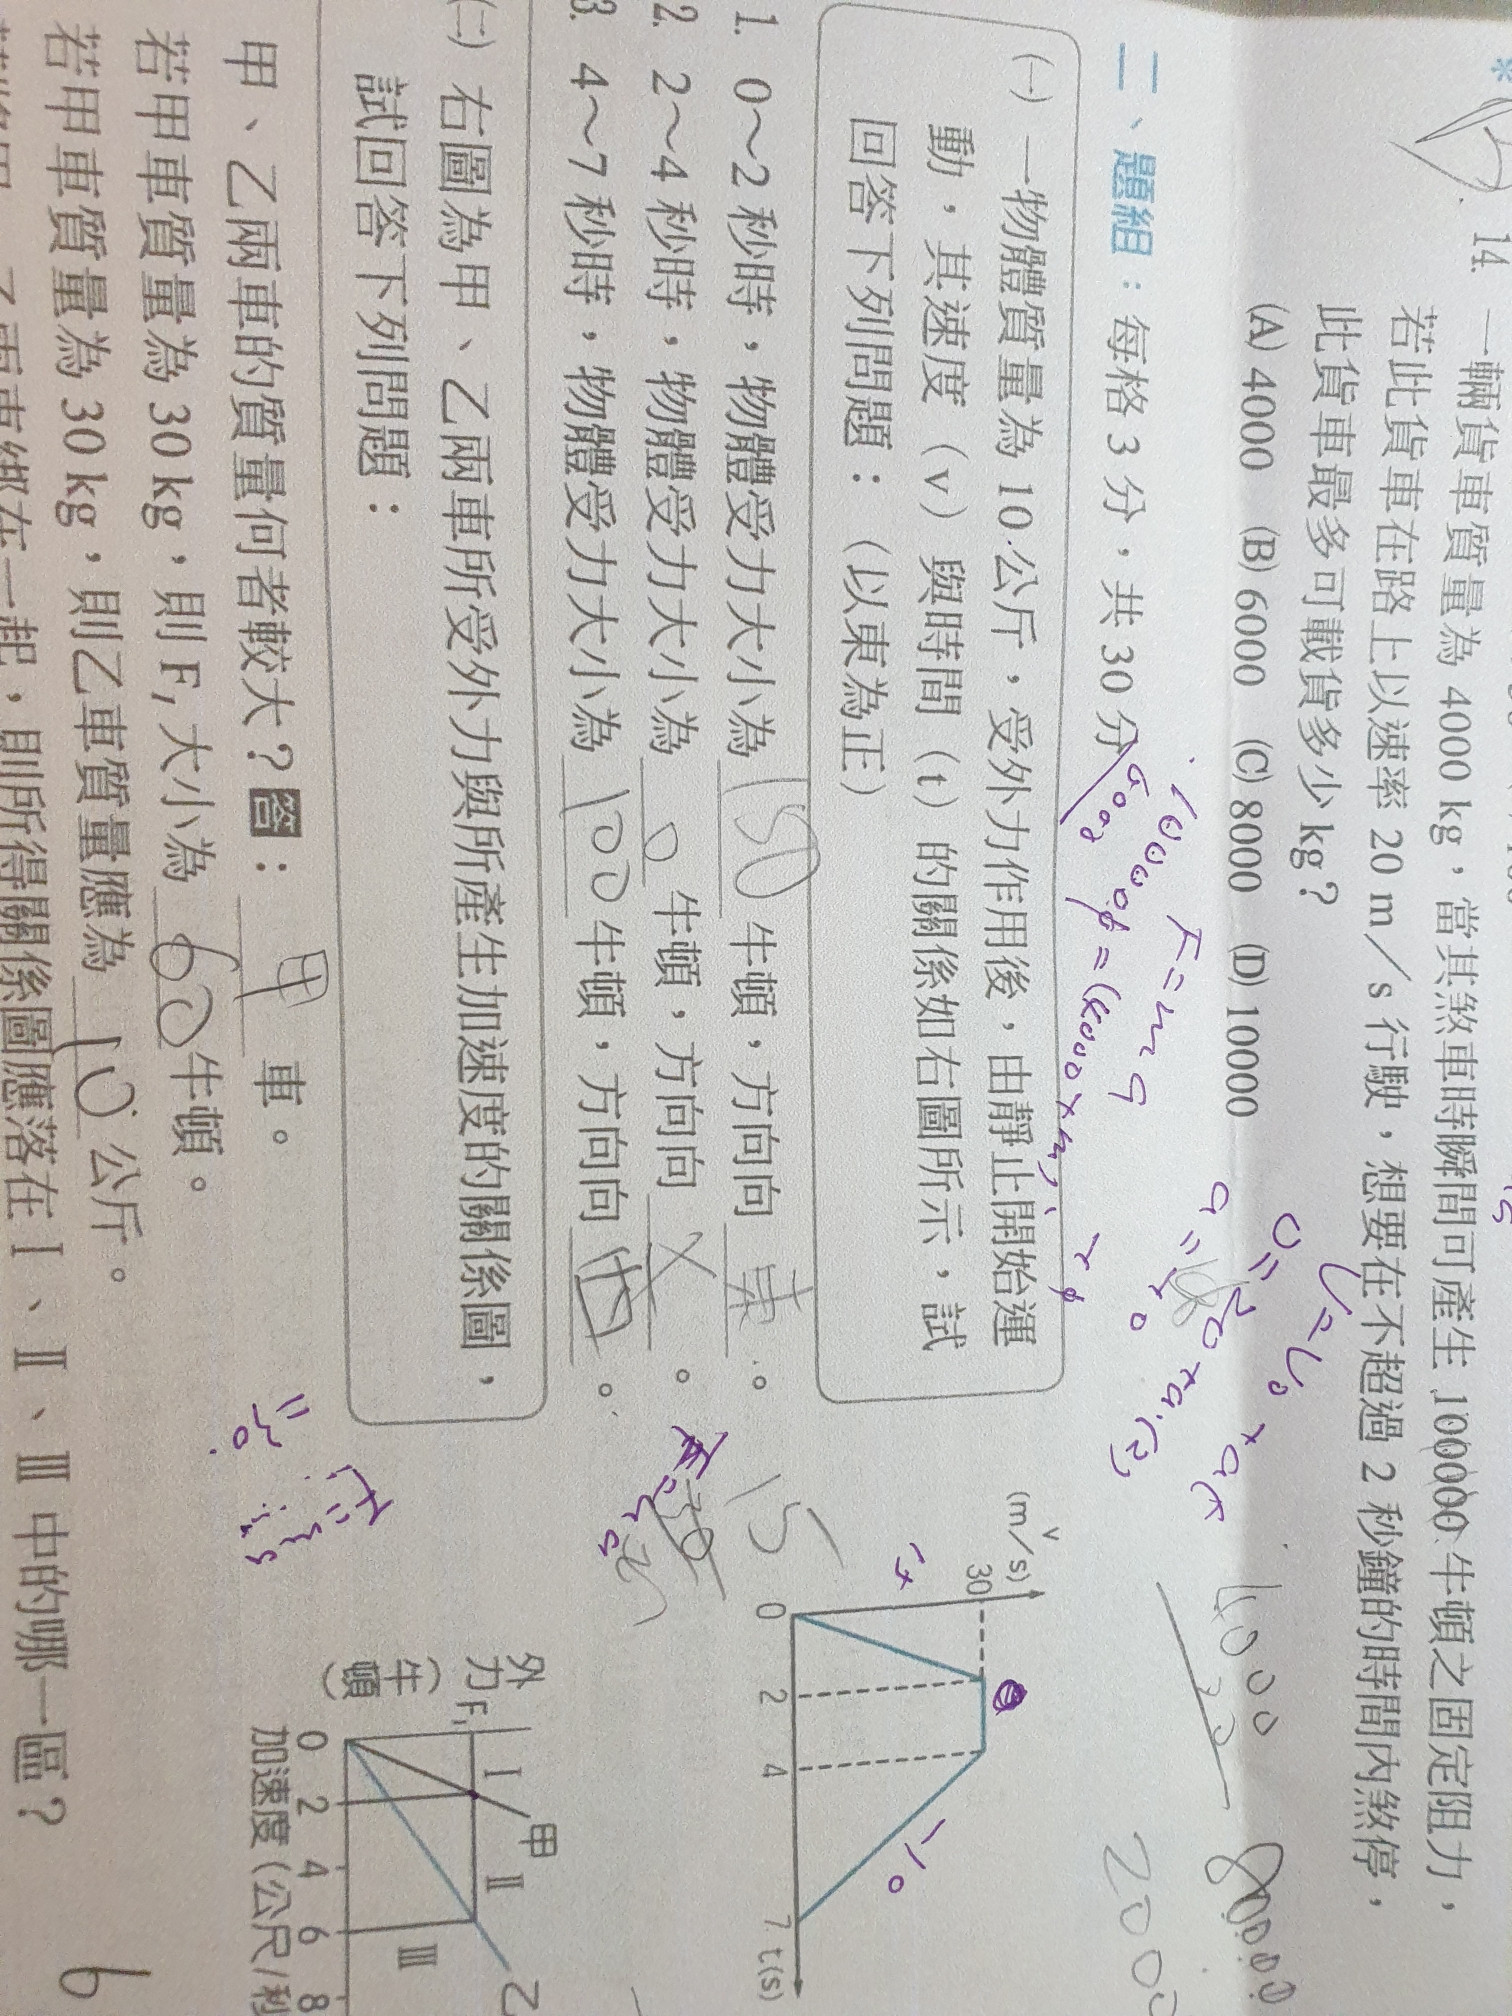 14. 一輛貨車質量為 4000 kg，當其煞車時瞬間可產生 100000 牛頓之固定阻力，
若此貨車在路上以速率 20 m／s 行駛，想要在不超過 2 秒鐘的時間內煞停，
此貨車最多可載貨多少 kg？
(A) 4000 (B) 6000 (C) 8000 (D) 10000
二、題組：每格 3 分，共 30 分
(一) 一物體質量為 10 公斤，受外力作用後，由靜止開始運
動，其速度（v）與時間（t）的關係如右圖所示，試
回答下列問題：（以東為正）
1. 0～2 秒時，物體受力大小為 150 牛頓，方向向 東 。
2. 2～4 秒時，物體受力大小為 0 牛頓，方向向 X 。
3. 4～7 秒時，物體受力大小為 100 牛頓，方向向 西 。
v
(m/s)
30
0 2 4 7 t(s)
15
-10
F=ma
(二) 右圖為甲、乙兩車所受外力與所產生加速度的關係圖，
試回答下列問題：
甲、乙兩車的質量何者較大？答： 甲 車。
若甲車質量為 30 kg，則 F₁ 大小為 60 牛頓。
若甲車質量為 30 kg，則乙車質量應為 10 公斤。
起，則所得關係圖應落在 I 、 II 、 III 中的哪一區？
外力（牛頓）
F₁
I 甲 II 乙 III
0 2 4 6 8
加速度（公尺/秒
4000
2000